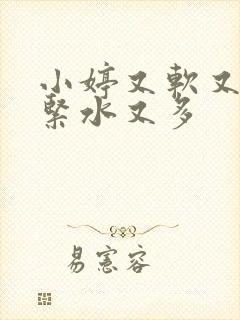 小婷又軟又
緊水又多
易憲容